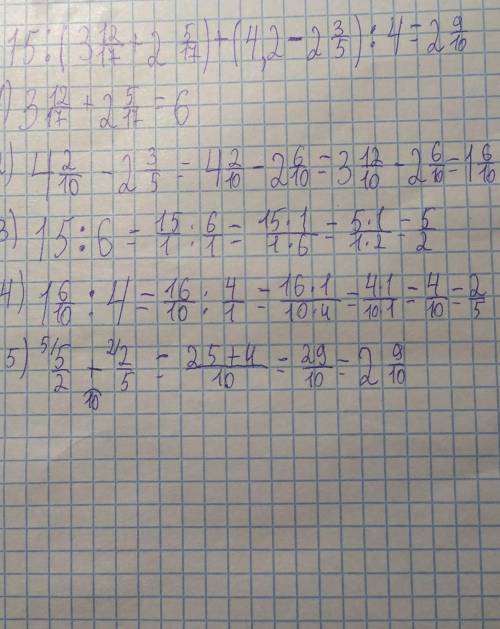 15:(3 12/17 + 2 5/17) + (4,2 - 2 3/5) : 4 = 2 9/10
1) 3 12/17 + 2 5/17 = 6
2) 4 2/10 - 2 3/5 = 4 2/10 - 2 6/10 = 3 12/10 - 2 6/10 = 1 6/10
3) 15 : 6 = 15/1 : 6/1 = 15·1/1·6 = 5·1/1·2 = 5/2
4) 1 6/10 : 4 = 16/10 : 4/1 = 16·1/10·4 = 4·1/10·1 = 4/10 = 2/5
5) 5/ 5/2 + 2/ 2/5 = 25+4/10 = 29/10 = 2 9/10
10